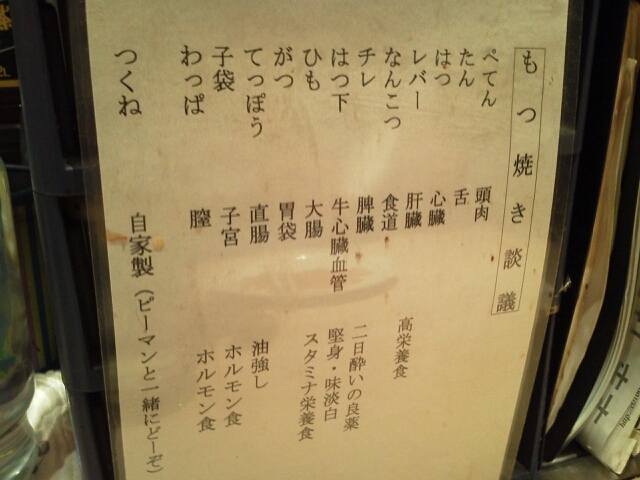 もつ焼き談議
ぺてん 頭肉
たん 舌
はつ 心臓
レバー 肝臓 高栄養食
なんこつ 食道
チレ 脾臓 二日酔いの良薬
はつ下 牛心臓血管 堅身・味淡白
ひも 大腸 スタミナ栄養食
がつ 胃袋
てっぽう 直腸 油強し
子袋 子宮 ホルモン食
わっぱ 膣 ホルモン食
つくね 自家製（ピーマンと一緒にどーぞ）